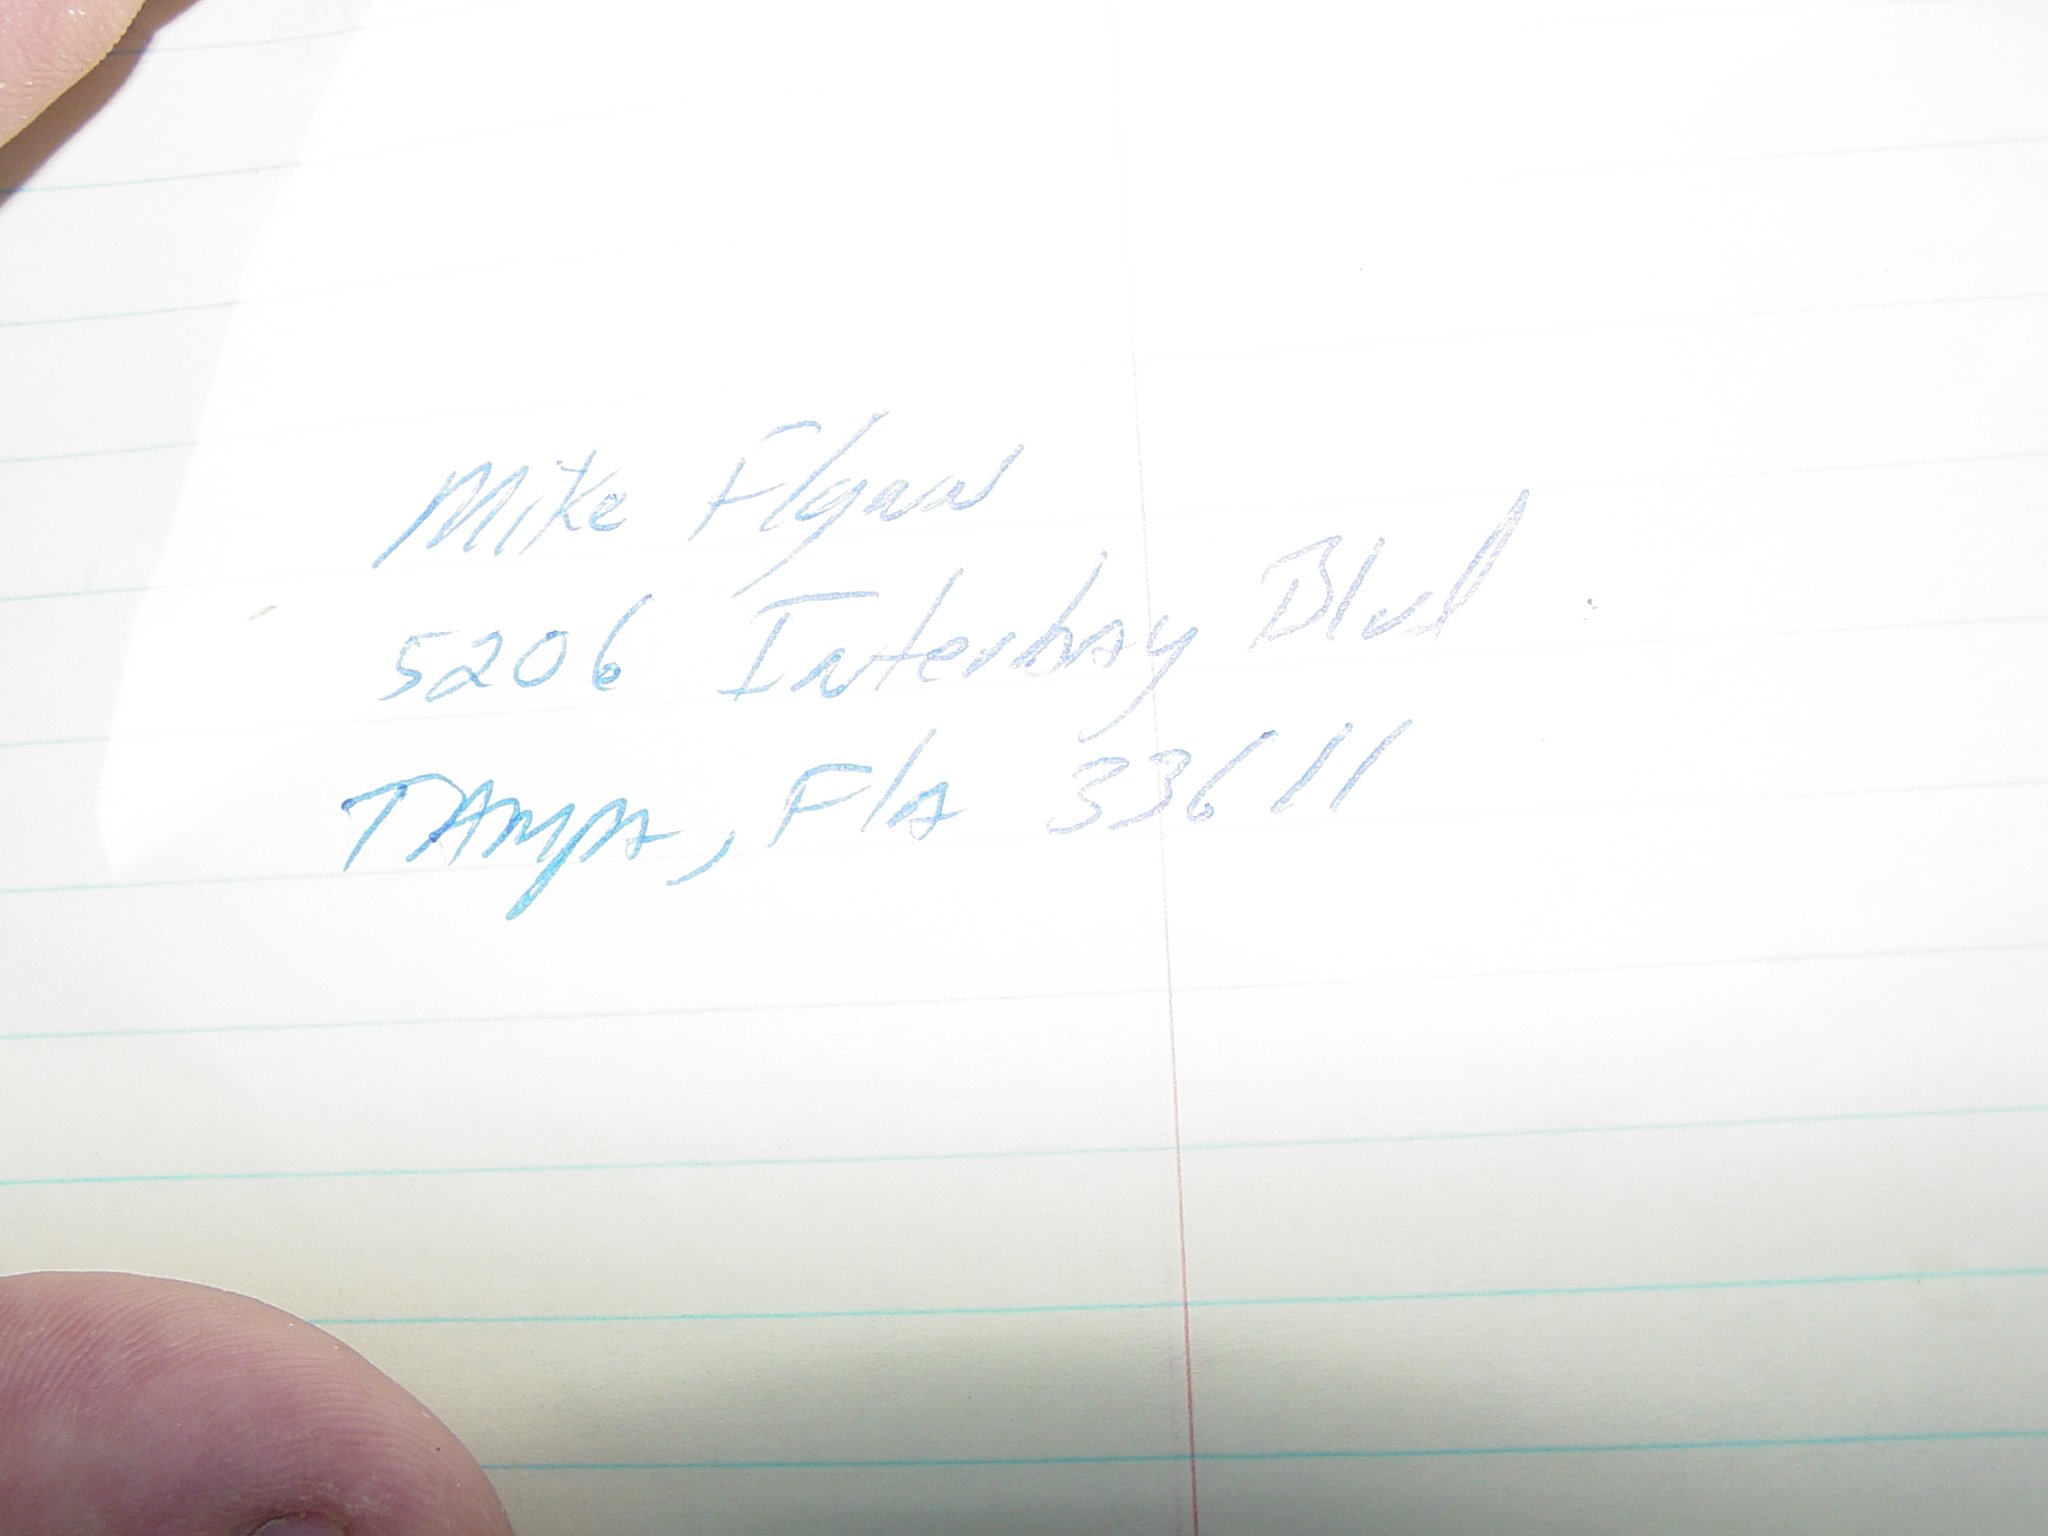 Mike Flynn
5206 Interbay Blvd
TAmpa, Fla 33611